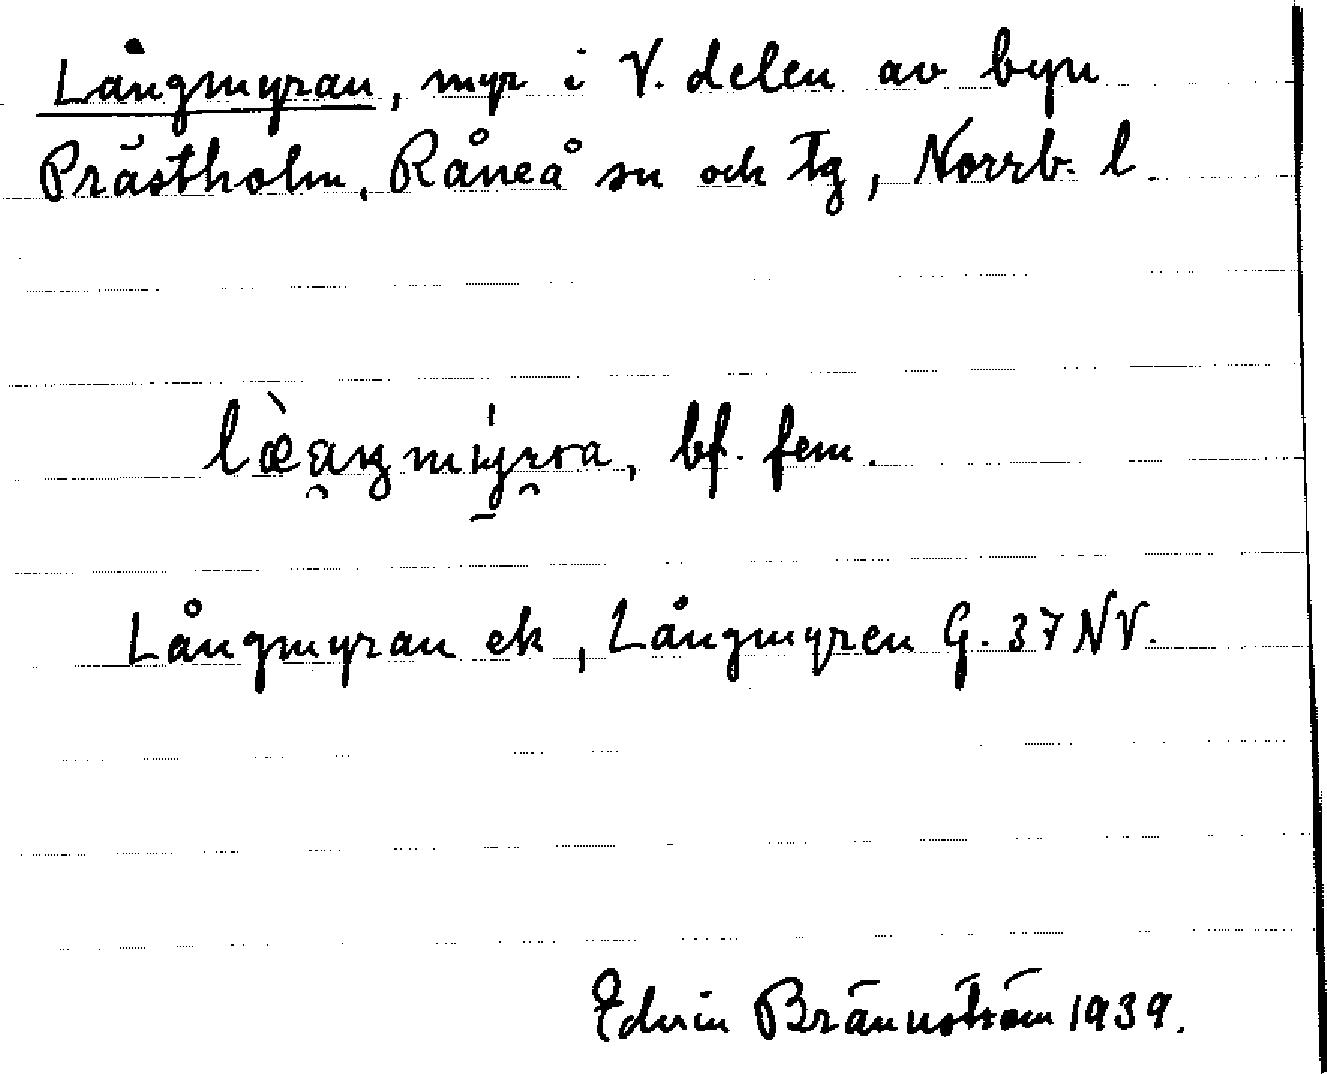 Långmyran, myr i V. delen av byn
Prästholm, Råneå sn och tg, Norrb. l
bf. fem.
Långmyran ek, Långmyren G. 37 NV.
Edvin Brännström 1939.